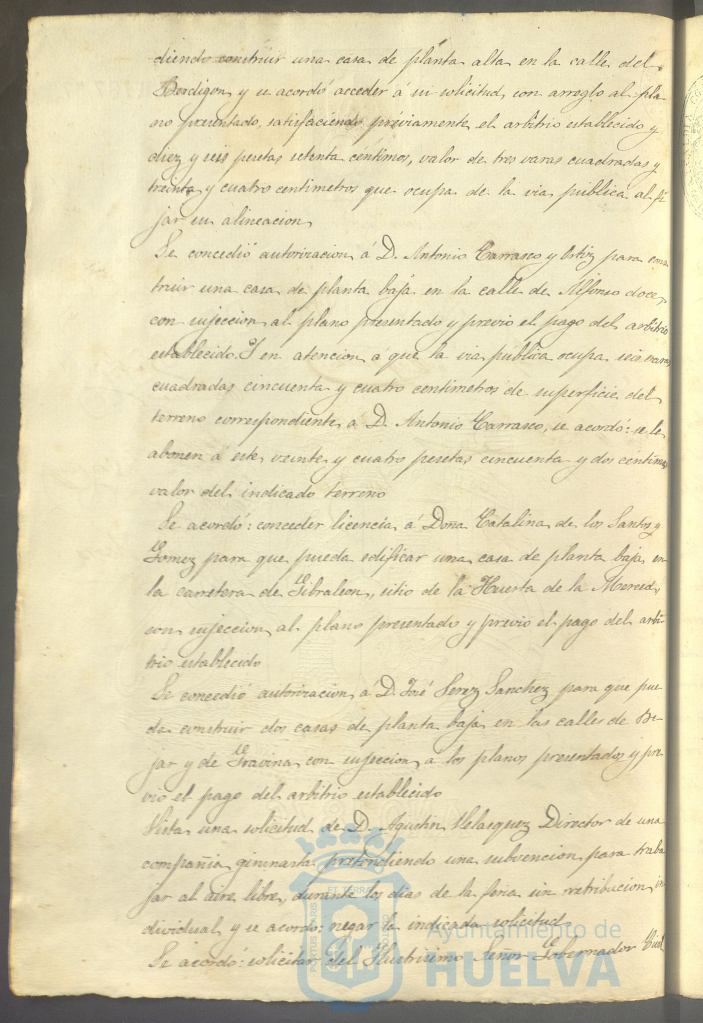 diendo construir una casa de planta alta en la calle del
Berdigon, y se acordó acceder á su solicitud, con arreglo al pla
no presentado, satisfaciendo préviamente el arbitrio establecido y
diez y seis pesetas setenta céntimos, valor de tres varas cuadradas y
treinta y cuatro centimetros que ocupa de la via publica al fi
jar su alineacion,
Se concedió autorizacion á D. Antonio Carrasco y Ortiz para cons
truir una casa de planta baja en la calle de Alfonso doce,
con sujeccion al plano presentado y previo el pago del arbitrio
establecido. Y en atencion a que la via pública ocupa seis varas
cuadradas cincuenta y cuatro centimetros de superficie del
terreno correspondiente a D. Antonio Carrasco, se acordó: se le
abonen á este, veinte y cuatro pesetas cincuenta y dos centimos
valor del indicado terreno
Se acordó: conceder licencia á Doña Catalina de los Santos y
Gomez para que pueda edificar una casa de planta baja, en
la carretera de Gibraleon, sitio de la Huerta de la Merced,
con sujeccion al plano presentado y previo el pago del arbi-
trio establecido
Se concedió autorizacion á D. José Perez Sanchez para que pue
da construir dos casas de planta baja en las calles de Be-
jar y de Gravina, con sujeccion a los planos presentados y pre-
vio el pago del arbitrio establecido
Vista una solicitud de D. Agustin Velasquez Director de una
compañia gimnasta pretendiendo una subvencion para traba
jar al aire libre, durante los dias de la feria sin retribucion in
dividual y se acordó: negar la indicada solicitud,
Se acordó: solicitar del Ilustrisimo Señor Gobernador Civil
Ayuntamiento de
HUELVA